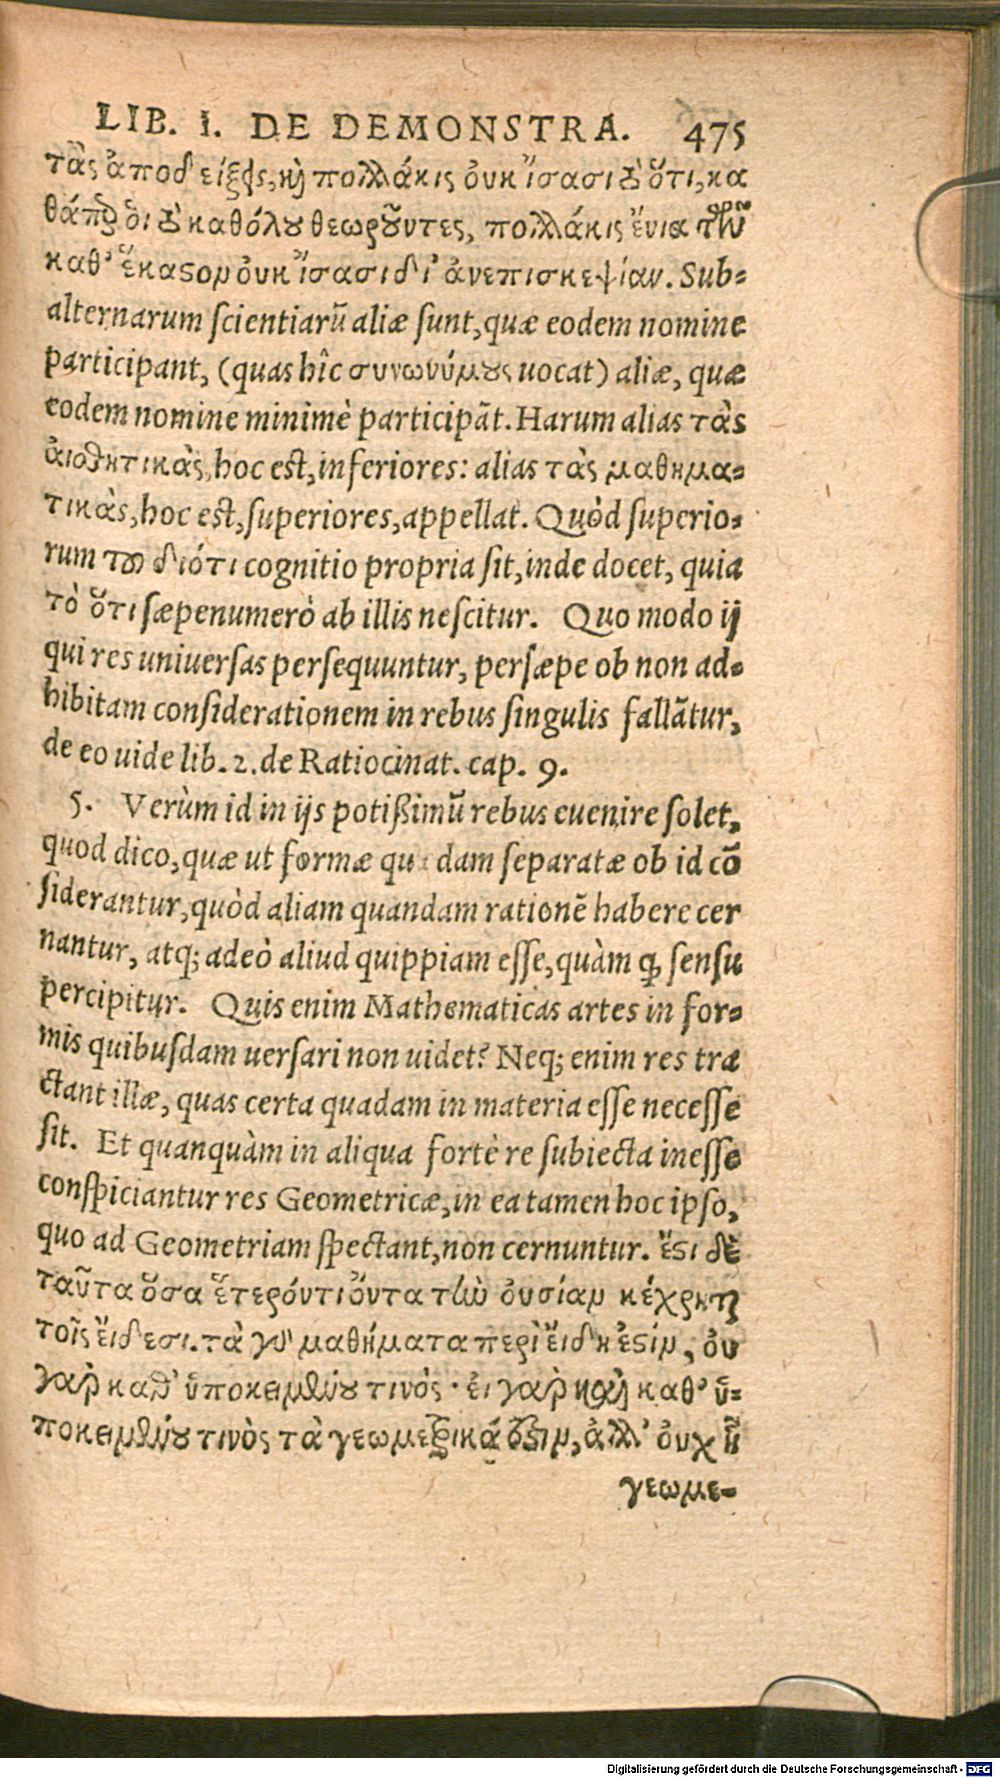 LIB. I. DE DEMONSTRA. 475
τὰς ἀποδείξεις, καὶ πολλάκις ὀυκ ἴσασι τὸ ὅτι, κα
θάπερ ὁι τὸ καθόλου θεωροῦντες, πολλάκις ἔνια τῶν
καθ᾽ ἕκαστον ὀυκ ἴσασι δι᾽ ἀνεπισκεψίαν. Sub-
alternarum scientiarũ aliæ sunt, quæ eodem nomine
participant, (quas hîc συνωνύμους uocat) aliæ, quæ
eodem nomine minimè participãt. Harum alias τὰς
ἀισθητικὰς, hoc est, inferiores: alias τὰς μαθημα-
τικὰς, hoc est, superiores, appellat. Quòd superio-
rum τοῦ διότι cognitio propria sit, inde docet, quia
τὸ ὅτι sæpenumerò ab illis nescitur. Quo modo ij
qui res uniuersas persequuntur, persæpe ob non ad-
hibitam considerationem in rebus singulis fallãtur,
de eo uide lib. 2. de Ratiocinat. cap. 9.
5. Verùm id in ijs potißimũ rebus euenire solet,
quod dico, quæ ut formæ qu dam separatæ ob id cõ
siderantur, quòd aliam quandam rationẽ habere cer
nantur, atq; adeò aliud quippiam esse, quàm q̃ sensu
percipitur. Quis enim Mathematicas artes in for-
mis quibusdam uersari non uidet? Neq; enim res tra
ctant illæ, quas certa quadam in materia esse necesse
sit. Et quanquàm in aliqua fortè re subiecta inesse
conspiciantur res Geometricæ, in ea tamen hoc ipso,
quo ad Geometriam spectant, non cernuntur. ἔστι δὲ
ταῦτα ὅσα ἕτερόν τι ὄντα τὴν ὀυσίαν κέχρηται
τοῖς ἔιδεσι. τὰ γὰρ μαθήματα περὶ ἔιδη ἐστίν, ὀυ
γὰρ καθ᾽ ὑποκειμένου τινός· ἐι γὰρ καὶ καθ᾽ ὑ-
ποκειμένου τινὸς τὰ γεωμετρικά ἐστιν, ἀλλ᾽ ὀυχ ᾗ
γεωμε-
Digitalisierung gefördert durch die Deutsche Forschungsgemeinschaft - DFG